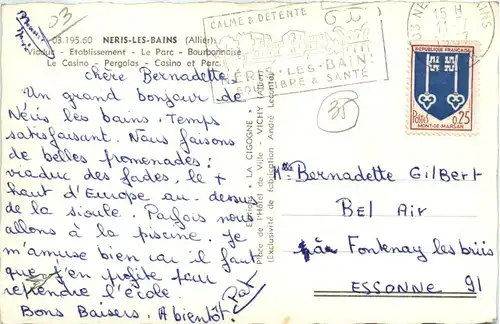 03
03.195.60 NERIS-LES-BAINS (Allier)
Viaduc - Etablissement - Le Parc - Bourbonnaise
Le Casino - Pergolas - Casino et Parc.
Chère Bernadette,
Un grand bonjour de
Néris les bains. Temps
satisfaisant. Nous faisons
de belles promenades :
viaduc des fades, le +
haut d'Europe au-dessus
de la sioule. Parfois nous
allons à la piscine. Je
m'amuse bien car il faut
que j'en profite pour
reprendre l'école.
Bons Baisers. A bientôt.
Pat
Editions "LA CIGOGNE"
Place de l'Hôtel de Ville - VICHY
(Exclusivité de fabrication André Leconte)
CALME & DETENTE
NERIS-LES-BAINS
& SANTÉ
15 H
03 NERIS LES BAINS
35
REPUBLIQUE FRANÇAISE
Postes 0,25
MONT-DE-MARSAN
Mlle Bernadette GILBERT
BEL AIR
par Fontenay les briis
ESSONNE 91